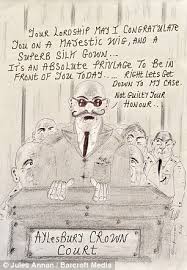 YOUR LORDSHIP MAY I CONGRATULATE
YOU ON A MAJESTIC WIG, AND A
SUPERB SILK GOWN...
IT'S AN ABSOLUTE PRIVILAGE TO BE IN
FRONT OF YOU TODAY... RIGHT LETS GET
DOWN TO MY CASE.
NOT GUILTY YOUR
HONOUR..
AYLESBURY CROWN
COURT
© Jules Annan / Barcroft Media